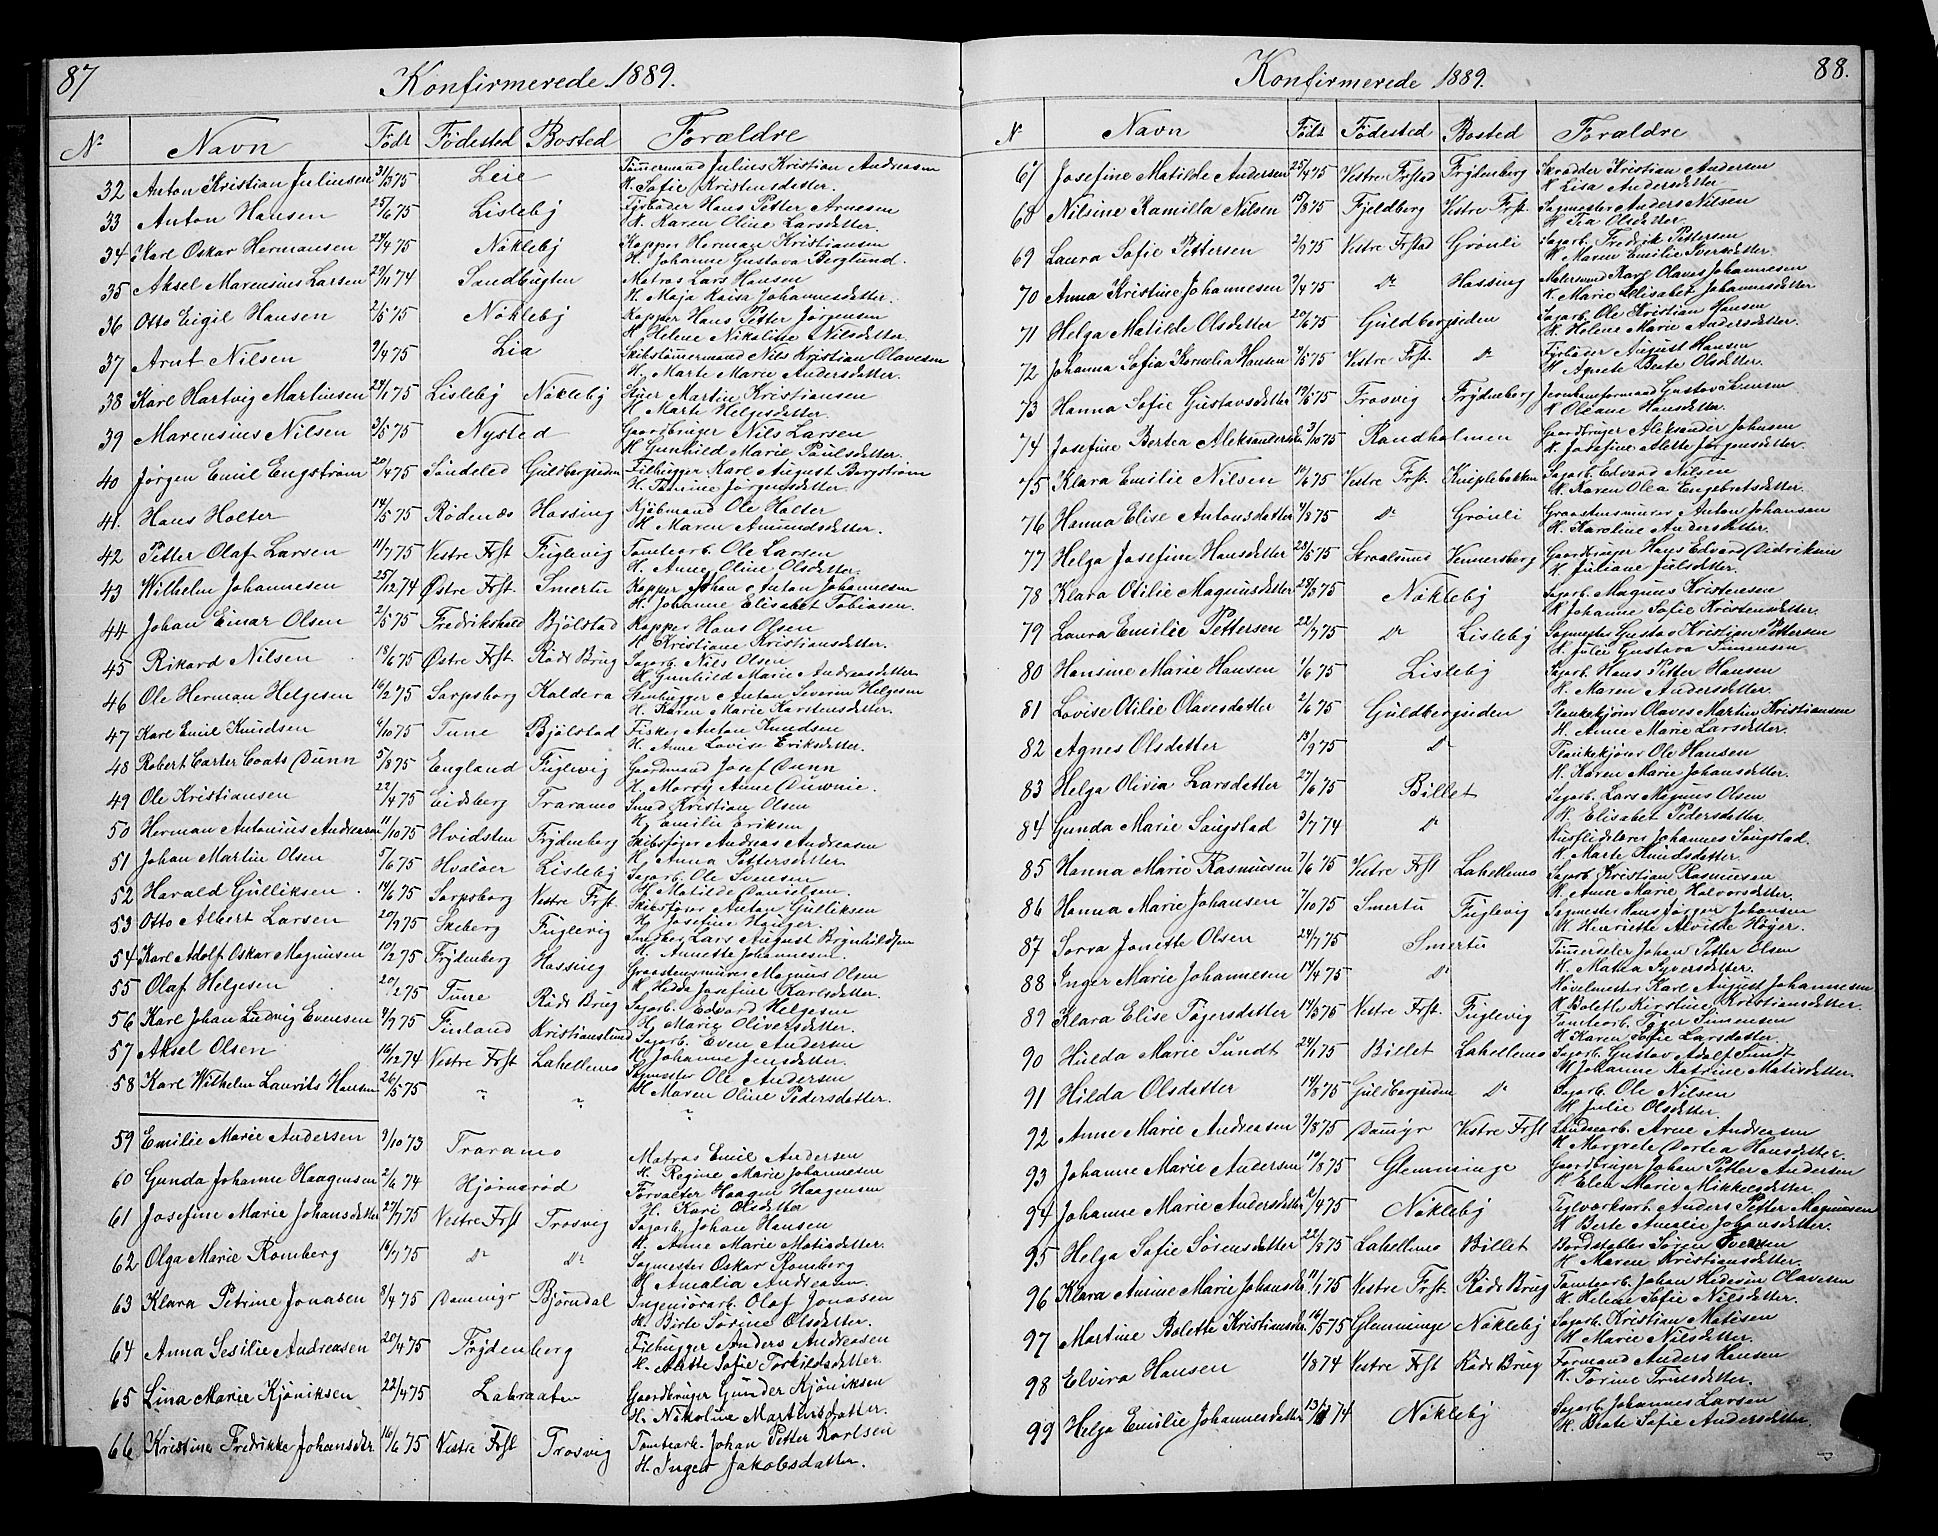 87
Konfirmerede 1889.
No Navn Født Fødested Bosted Forældre
32 Anton Kristian Juliussen 31/3 75 Leie Tømermand Julius Kristian Andreasen
H. Sofie Kristensdatter.
33 Anton Hansen 25/6 75 Lisleby Fyrbøder Hans Petter Arnesen
H. Karen Oline Larsdatter.
34 Karl Oskar Hermansen 24/4 75 Nøkleby Kapper Herman Kristiansen
H. Johanne Gustava Berglund.
35 Aksel Marensius Larsen 29/11 74 Sandbugten Matros Lars Hansen
H. Maja Kaisa Johannesdatter.
36 Otto Eigil Hansen 2/5 75 Nøkleby Kapper Hans Petter Jørgensen
H. Helene Nikoline Nilsdatter.
37 Arnt Nilsen 9/4 75 Lia Skibstømermand Nils Kristian Olavesen
H. Marte Marie Andersdatter.
38 Karl Hartvig Martinsen 24/1 75 Lisleby Nøkleby Stuer Martin Kristiansen
H. Marte Helgesdatter.
39 Marensius Nilsen 3/5 75 Nysted Gaardbruger Nils Larsen
H. Gunhild Marie Paulsdatter.
40 Jørgen Emil Engstrøm 20/4 75 Søndeled Guldbergsiden Filhugger Karl August Borgstrøm
H. Torine Jørgensdatter.
41. Hans Holter 14/5 75 Rødenæs Hassing Kjøbmand Ole Holter
H. Maren Amundsdatter.
42 Petter Olaf Larsen 11/7 75 Vestre Frst Fuglevig Tomtearb. Ole Larsen
H. Anne Oline Olsdatter.
43 Wilhelm Johannesen 25/12 74 Østre Frst. Smertu Kapper Johan Anton Johannesen
H. Johanne Elisabet Tobiasen.
44 Johan Einar Olsen 2/5 75 Fredrikshald Bjølstad Kapper Hans Olsen
H. Kristiane Kristiansdatter.
45 Rikard Nilsen 18/6 75 Østre Frst. Røds Brug Sagarb. Nils Olsen
H. Gunhild Marie Andreasdatter
46 Ole Herman Helgesen 16/2 75 Sarpsborg Kaldera Stenhugger Anton Severin Helgesen
H. Karen Marie Karstensdatter.
47 Karl Emil Knudsen 6/10 75 Tune Bjølstad Fisker Anton Knudsen
H. Anne Lovise Eriksdatter.
48 Robert Carter Coats Dunn 5/8 75 England Fuglevig Gaardmand Josef Dunn
H. Marry Anne Duwnie.
49 Ole Kristiansen 22/4 75 Eidsberg Traramo Smed Kristian Olsen
H. Emilie Eriksen
50 Herman Antonius Andreasen 11/10 75 Hvidsten Frydenberg Skibsfører Andreas Andreasen
H. Anna Pettersdatter.
51 Johan Martin Olsen 5/6 75 Hvaløer Lisleby Sagarb. Ole Svensen
H. Matilde Danielsen.
52 Harald Gulliksen 14/6 75 Sarpsborg Vestre Frst. Skibstømr Anton Gulliksen
H. Josefine Hauger.
53 Otto Albert Larsen 20/7 75 Skeberg Fuglevig Lars August Brynhildsen
H. Annette Johannesen.
54 Karl Adolf Oskar Magnusen 10/2 75 Frydenberg Hassing Graastensmurer Magnus Olsen
H. Hedda Josefine Karlsdatter.
55 Olaf Helgesen 20/2 75 Tune Røds Brug Sagarb. Edvard Helgesen
H. Marie Oliversdatter.
56 Karl Johan Ludvig Evensen 4/7 75 Finland Kristianslund Sagarb. Even Andersen
H. Johanne Jensdatter.
57 Aksel Olsen 16/12 74 Vestre Frst Lahellemo Sagmester Ole Andersen
H. Maren Oline Pedersdatter.
58 Karl Wilhelm Laurits Hansen 26/5 75 " " "
59 Emilie Marie Andersen 9/10 73 Traramo Matros Emil Andersen
H. Regine Marie Johannesen
60 Gunda Johanne Haagensen 2/6 74 Hjørnerød Forvalter Haagen Haagensen
H. Kari Olsdatter
61 Josefine Marie Johansdatter 27/7 75 Vestre Frst Trosvig Sagarb. Johan Hansen
H. Anne Marie Matisdatter.
62 Olga Marie Romberg 16/7 75 Do Do Sagmester Oskar Romberg
H. Amalia Andreasen.
63 Klara Petrine Jonasen 8/4 75 Damingr Bjørndal Ingeniørarb. Olaf Jonasen
H. Birte Sørine Olsdatter.
64 Anna Sesilie Andreasen 20/4 75 Frydenberg Filhugger Anders Andreasen
H. Alette Sofie Torkildsdatter.
65 Lina Marie Kjøniksen 22/4 75 Labraaten Gaardbruger Gunder Kjøniksen
H. Nikoline Martinsdatter.
66 Kristine Fredrikke Johansdtr 16/6 75 Vestre Frst Trosvig Tomtearb. Johan Petter Karlsen
H. Inger Jakobsdatter.
88.
Konfirmerede 1889.
N Navn Født Fødested Bosted Forældre
67 Josefine Matilde Andersen 25/4 75 Vestre Frstad Frydenberg Skrædder Kristian Andersen
H Lisa Andersdatter
68 Nilsine Kamilla Nilsen 15/8 75 Fjeldberg Vestre Frst. Sagmester Anders Nilsen
H Tea Olsdatter.
69 Laura Sofie Pettersen 2/7 75 Vestre Frstad Grønli Sagarb. Fredrik Pettersen
H. Maren Emilie Iversdatter.
70 Anna Kristine Johannesen 2/4 75 Do Hassing Matersmed Karl Olaves Johannesen
H. Marie Elisabet Johannesdatter.
71 Helga Matilde Olsdatter 20/6 75 Guldbergsiden Sagarb. Ole Kristian Hansen
H. Helene Marie Andersdatter.
72 Johanna Sofia Kornelia Hansen 9/5 75 Vestre Frst. Do Fyrbøder August Hansen
H Agnete Beate Olsdatter.
73 Hanna Sofie Gustavsdatter 19/6 75 Trosvig Frydenberg Jernbaneformand Gustav Larsen
H Oleane Hansdatter.
74 Josefine Bertea Aleksandersdtr 3/10 75 Randholmen Gaardbruger Aleksander Johnsen
H. Josefine Alette Jørgensdatter.
75 Klara Emilie Nilsen 19/6 75 Vestre Frst. Kniplebakken Sagarb. Edvard Nilsen
H. Karen Olea Engebretsdatter.
76 Hanna Elise Antonsdatter 4/3 75 Do Grønli Graastensmurer Anton Johansen
H. Karoline Andersdatter.
77 Helga Josefine Hansdatter 28/5 75 Straalsund Vennersberg Gaardbruger Hans Edvard Didriksen
H Juliane Julsdatter.
78 Klara Otilie Magnusdatter 28/3 75 Nøkleby Sagarb. Magnus Kristensen
H Johanne Sofie Kristensdatter.
79 Laura Emilie Pettersen 22/7 75 Do Lisleby Sagmester Gustav Kristian Pettersen
H. Julie Gustava Simensen
80 Hansine Marie Hansen 1/6 75 Lisleby Sagarb. Hans Petter Hansen
H. Maren Andersdatter.
81 Lovise Otilie Olavesdatter 2/6 75 Guldbergsiden Plankekjører Olaves Martin Kristiansen
H. Anne Marie Larsdatter.
82 Agnes Olsdatter 13/9 75 Do Plankekjører Ole Hansen
H. Karen Marie Johansdatter.
83 Helga Olivia Larsdatter 27/6 75 Billet Sagarb. Lars Magnus Olsen
H. Elisabet Pedersdatter.
84 Gunda Marie Saugstad 3/7 74 Do Husflidslærer Johannes Saugstad.
H. Marte Knudsdatter.
85 Hanna Marie Rasmusen 7/6 75 Vestre Frst Lahellemo Sagarb. Kristian Rasmusen
H. Anne Marie Halvorsdatter.
86 Hanna Marie Johansen 7/10 75 Smertu Fuglevig Sagmester Hans Jørgen Johansen
H. Henriette Alvilde Høyer.
87 Sorra Jonette Olsen 24/7 75 Smertu Tømersæler Johan Petter Olsen
H. Matea Syversdatter.
88 Inger Marie Johannesen 14/4 75 Do Høvelmester Karl August Johannesen
H Bolette Kirstine Kristiansdatter.
89 Klara Elise Fagersdatter 14/5 75 Vestre Frst. Fuglevig Tomtearb. Fager Simensen
H Karen Sofie Larsdatter.
90 Hulda Marie Sundt 24/1 75 Billet Lahellemo Sagarb. Gustav Adolf Sundt
H Johanne Katrine Matisdatter.
91 Hilda Olsdatter 14/2 75 Guldbergsiden Do Sagarb. Ole Nilsen
H. Julie Olsdatter.
92 Anne Marie Andreasen 9/8 75 Damyr Vestre Frst Landsarb. Arne Andreasen
H Margrete Dortea Hansdatter.
93 Johanne Marie Andersen 19/8 75 Glemminge Gaardbruger Johan Petter Andersen
H Elen Marie Mikkelsdatter.
94 Johanne Marie Andersdatter 2/4 75 Nøkleby Teglværksarb. Anders Petter Magnusen
H Berte Amalie Johansdatter.
95 Helga Sofie Sørensdatter 22/3 75 Lahellemo Billet Bordstabler Søren Evensen
H Maren Kristiansdatter.
96 Klara Amine Marie Johansdtr 11/1 75 Vestre Frst. Røds Brug Tomtearb. Johan Hedesin Olavesen
H. Helene Sofie Nilsdatter.
97 Martine Bolette Kristiansdtr. 16/5 75 Glemminge Nøkleby Sagarb. Kristian Matisen
H Marie Nilsdatter.
98 Elvira Hansen 1/8 74 Vestre Frst Røds Brug Formand Anders Hansen
H. Torine Trulsdatter.
99 Helga Emilie Johannesdatter 74 Nøkleby Sagarb Johannes Larsen
H. Beate Sofie Andersdatter.